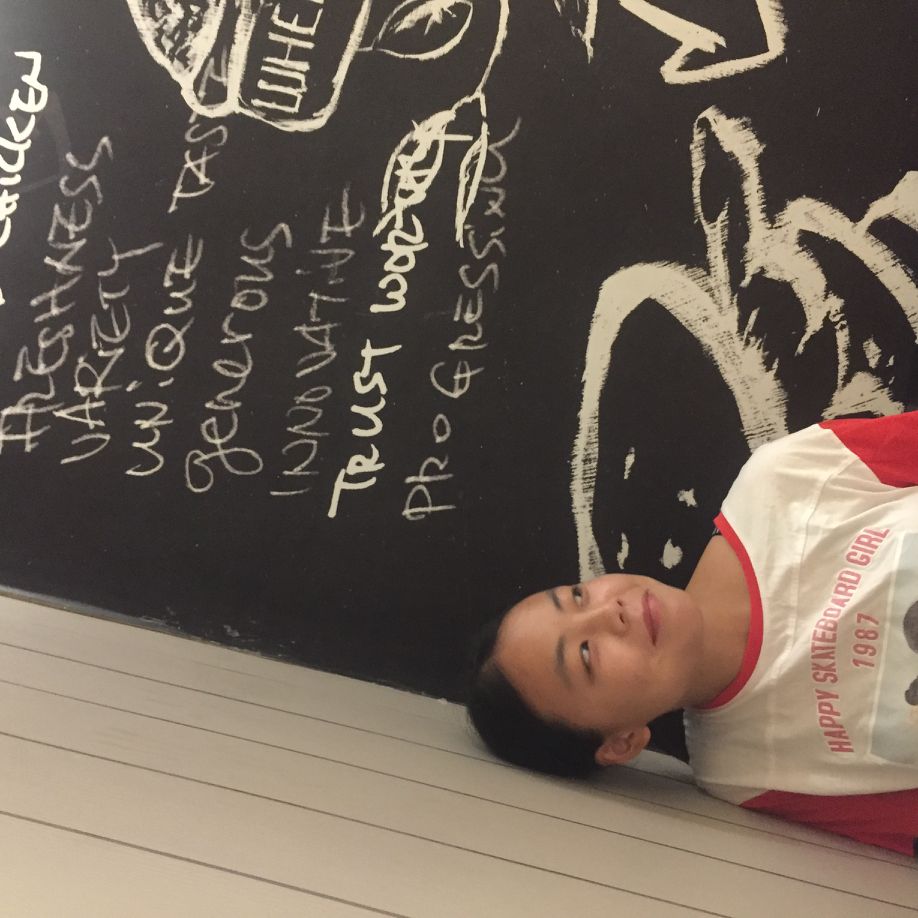 CHICKEN
FRESHNESS
VARIETY
UNiQUE TASTE
generous
INNOVATiVE
TRUST WORTHY
PROGRESSiNG
WHE
HAPPY SKATEBOARD GIRL
1987